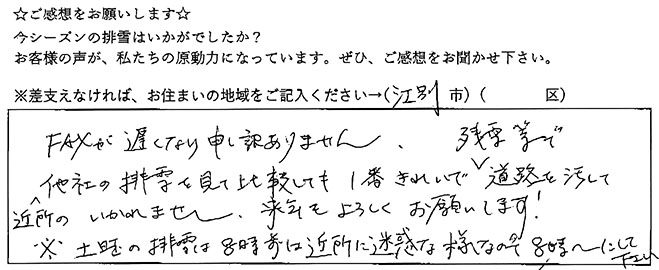 ☆ご感想をお願いします☆
今シーズンの排雪はいかがでしたか？
お客様の声が、私たちの原動力になっています。ぜひ、ご感想をお聞かせ下さい。
※差支えなければ、お住まいの地域をご記入ください→(江別 市)( 区)
FAXが遅くなり申し訳ありません。 残雪等で
他社の排雪を見て比較しても1番きれいで 道路を汚して
近所の いかれません。来年もよろしくお願いします!
※土曜の排雪は8時前は近所に迷惑な様なので8時〜にして
下さい